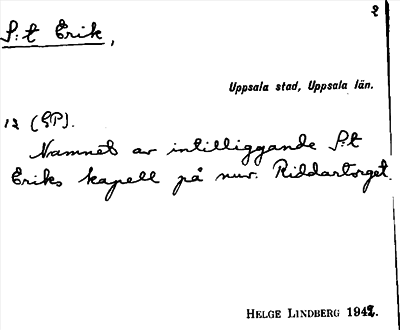 2
S:t Erik,
Uppsala stad, Uppsala län.
12 (GP).
Namnet av intilliggande S:t
Eriks kapell på nuv. Riddartorget.
HELGE LINDBERG 1942.